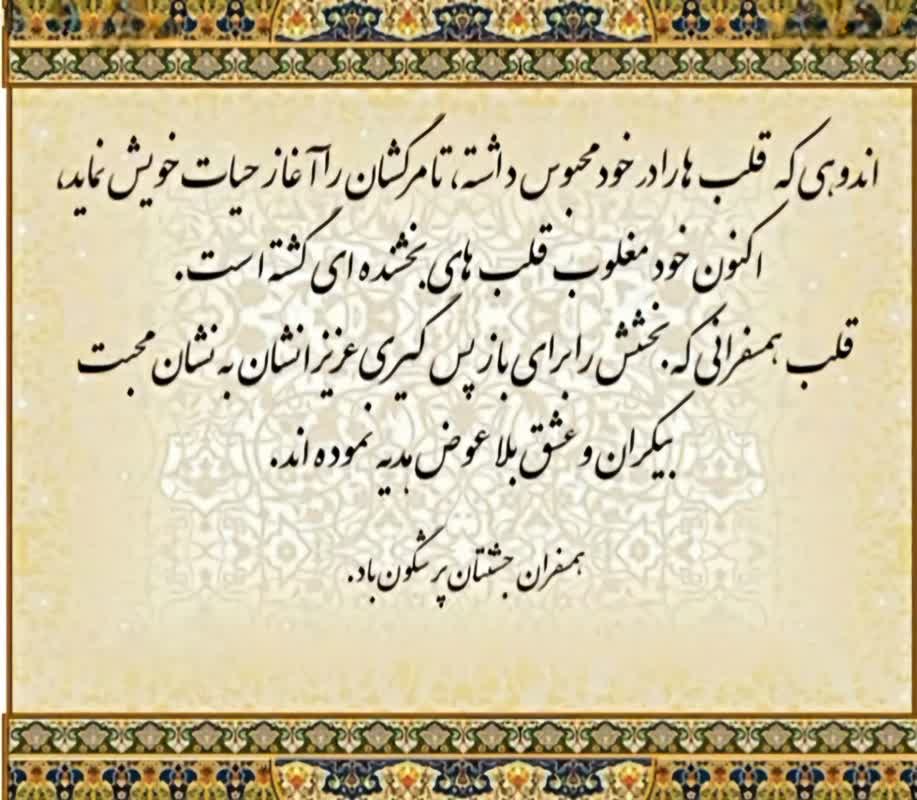 اندوهی که قلب ها را در خود محبوس داشته، تا مرگشان را آغاز حیات خویش نماید،
اکنون خود مغلوب قلب های بخشنده ای گشته است.
قلب همسفرانی که بخشش را برای باز پس گیری عزیزانشان به نشان محبت
بیکران و عشق بلاعوض هدیه نموده اند.
همسفران جشنتان پر شگون باد.